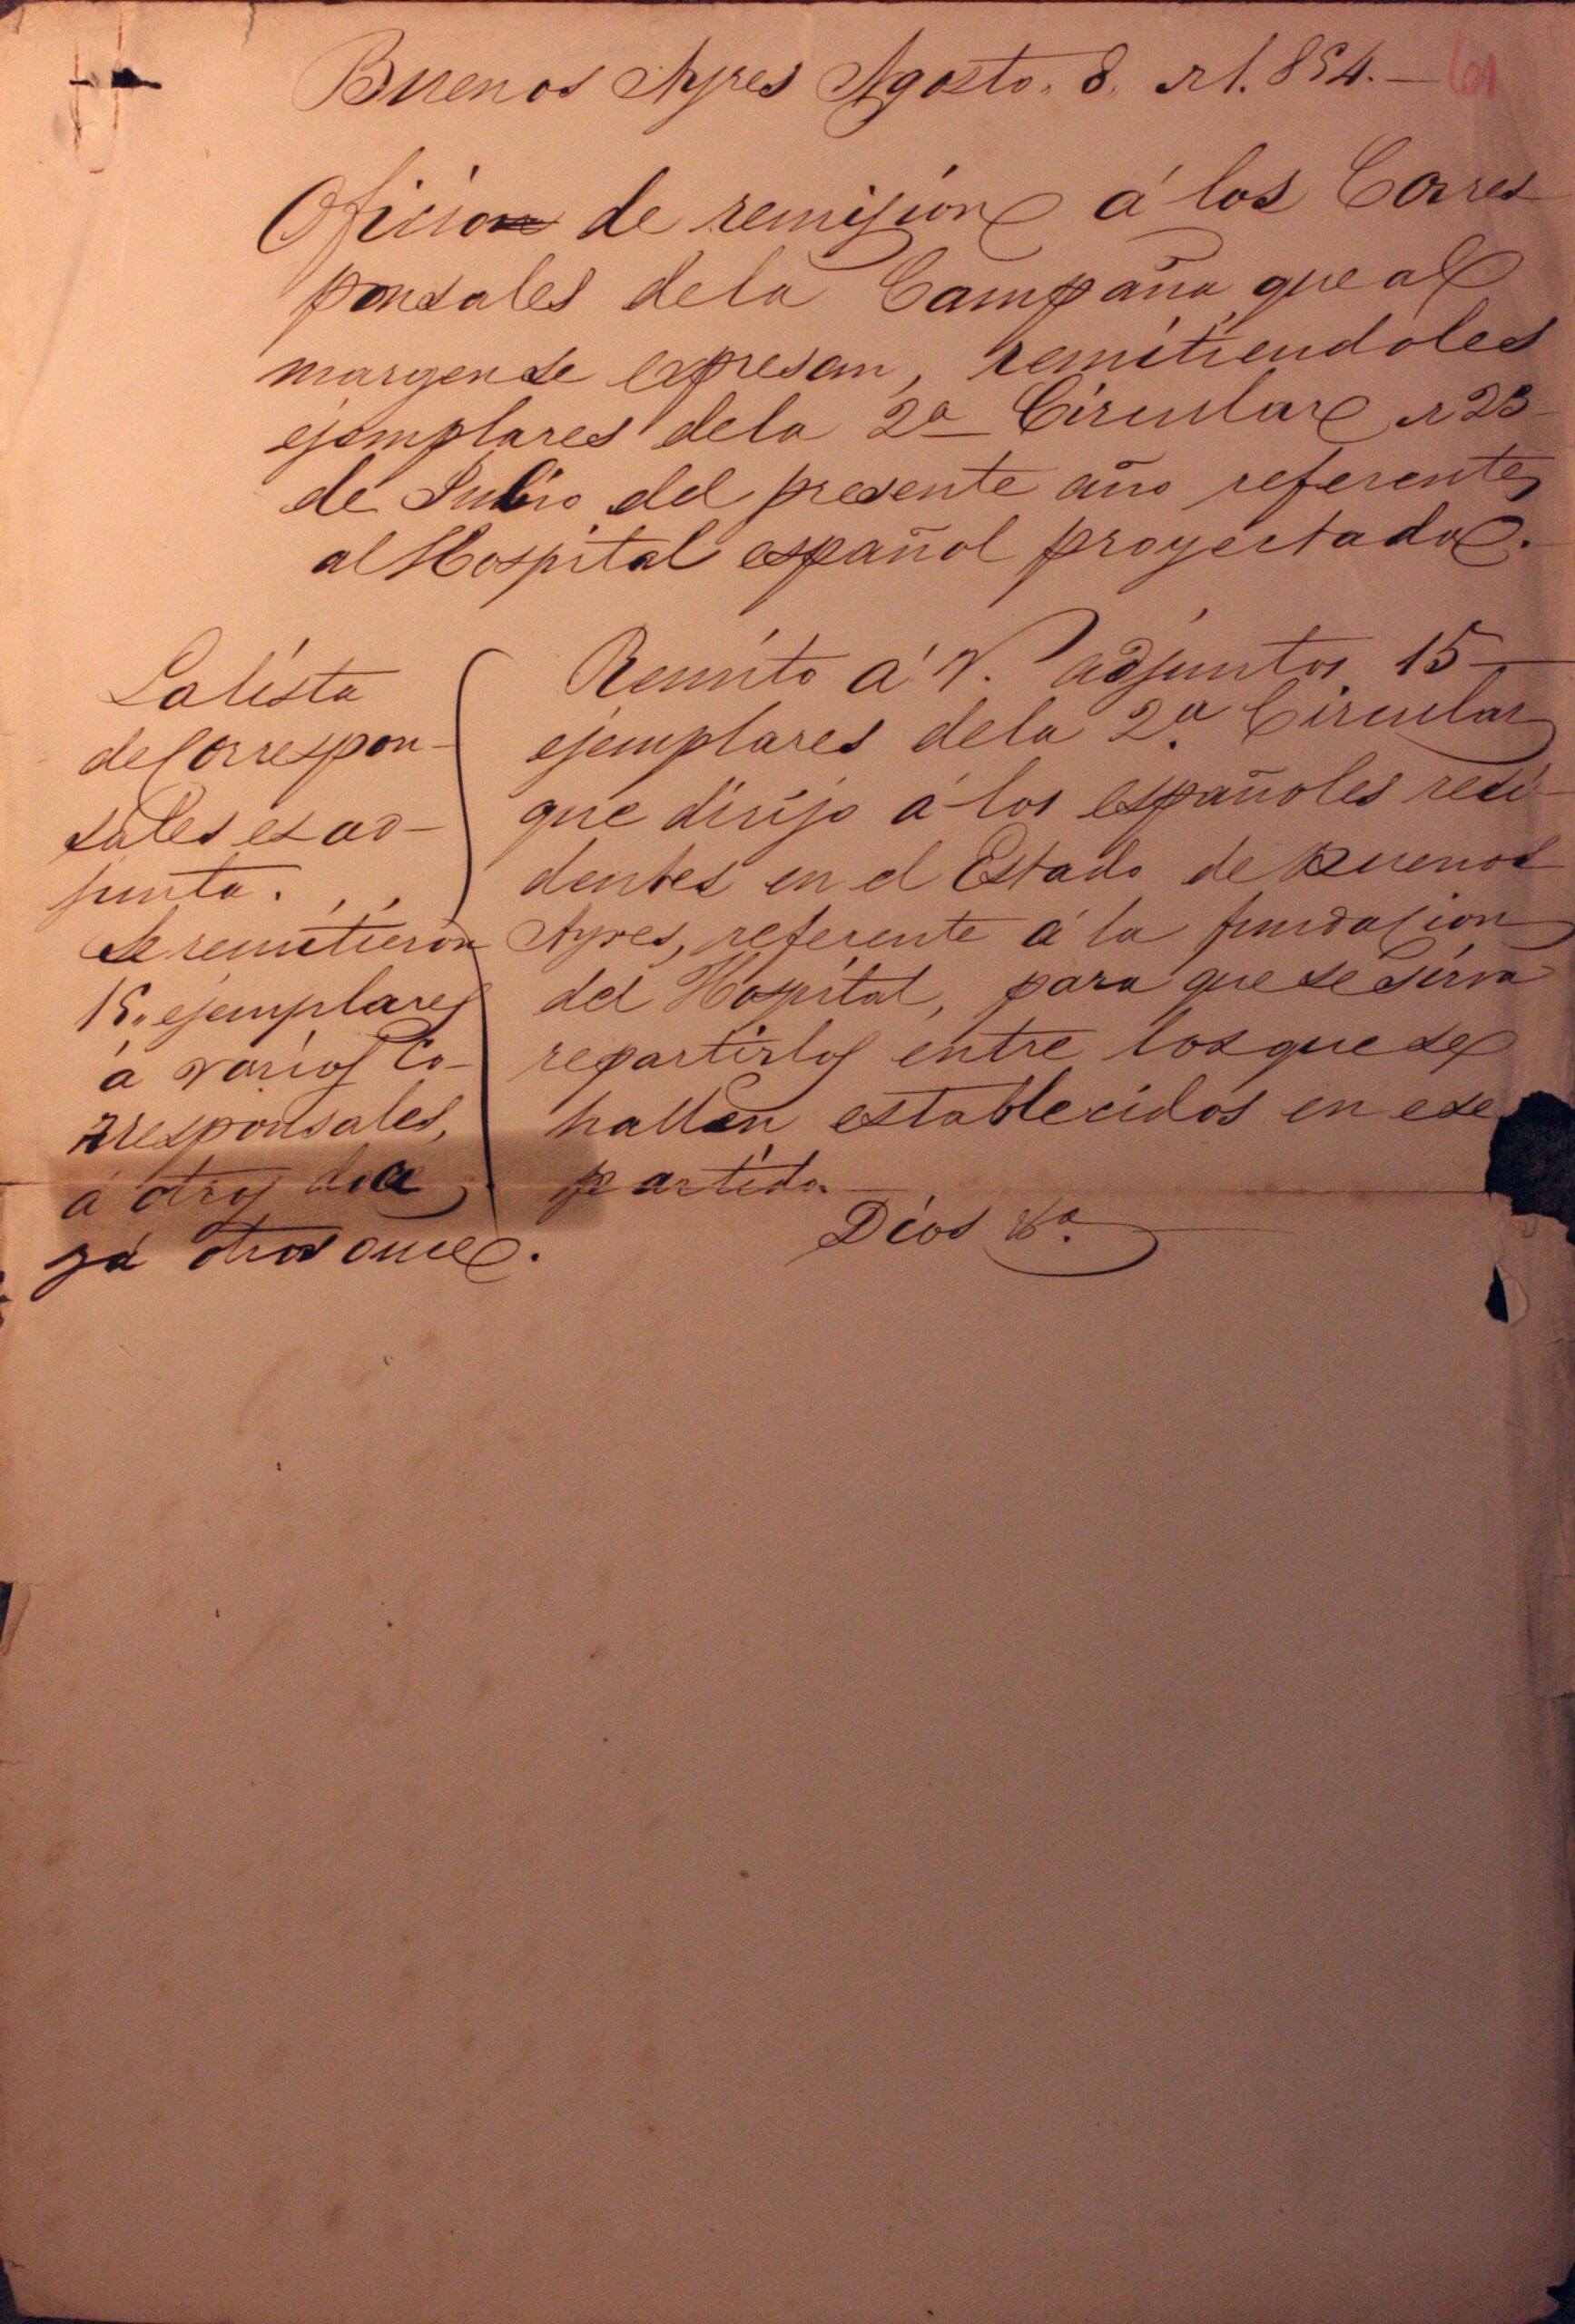 Buenos Ayres Agosto. 8. de 1.854.—
61
Oficio de remision á los Corres
ponsales dela Campaña que al
margen se expresan, remitiendoles
ejemplares dela 2ª Circular de 23
de Julio del presente año referente
al Hospital español proyectado.
La lista
de Correspon-
sales es ad-
junta.
Se remitieron
15,, ejemplares
á varios Co-
rresponsales,
á otros doce
y á otros once.
Remito á V. adjuntos 15
ejemplares dela 2ª Circular
que dirijo á los españoles resi-
dentes en el Estado de Buenos
Ayres, referente á la fundasion
del Hospital, para que se sirva
repartirlos entre los que se
hallen establecidos en ese
partido
Dios &ª.